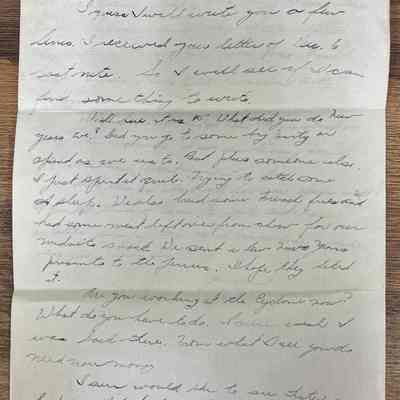 I guess I will write you a few
lines. I received your letter of Dec. 6
last nite. So I will see if I can
find some thing to write.
Well how it is
What did you do New
years eve? Did you go to some big party or
spend as we us to. But plus someone else.
I just spent it quite. Trying to catch some
of sleep. We also had some french fries and
had some meat left over from chow for our
midnite snack. We sent a few New Years
presents to the
I hope they liked
it.
Are you working at the Cyclone now?
What do you have to do. I sure wish I
was back there. From what I see you do
need now money
I sure would like to see